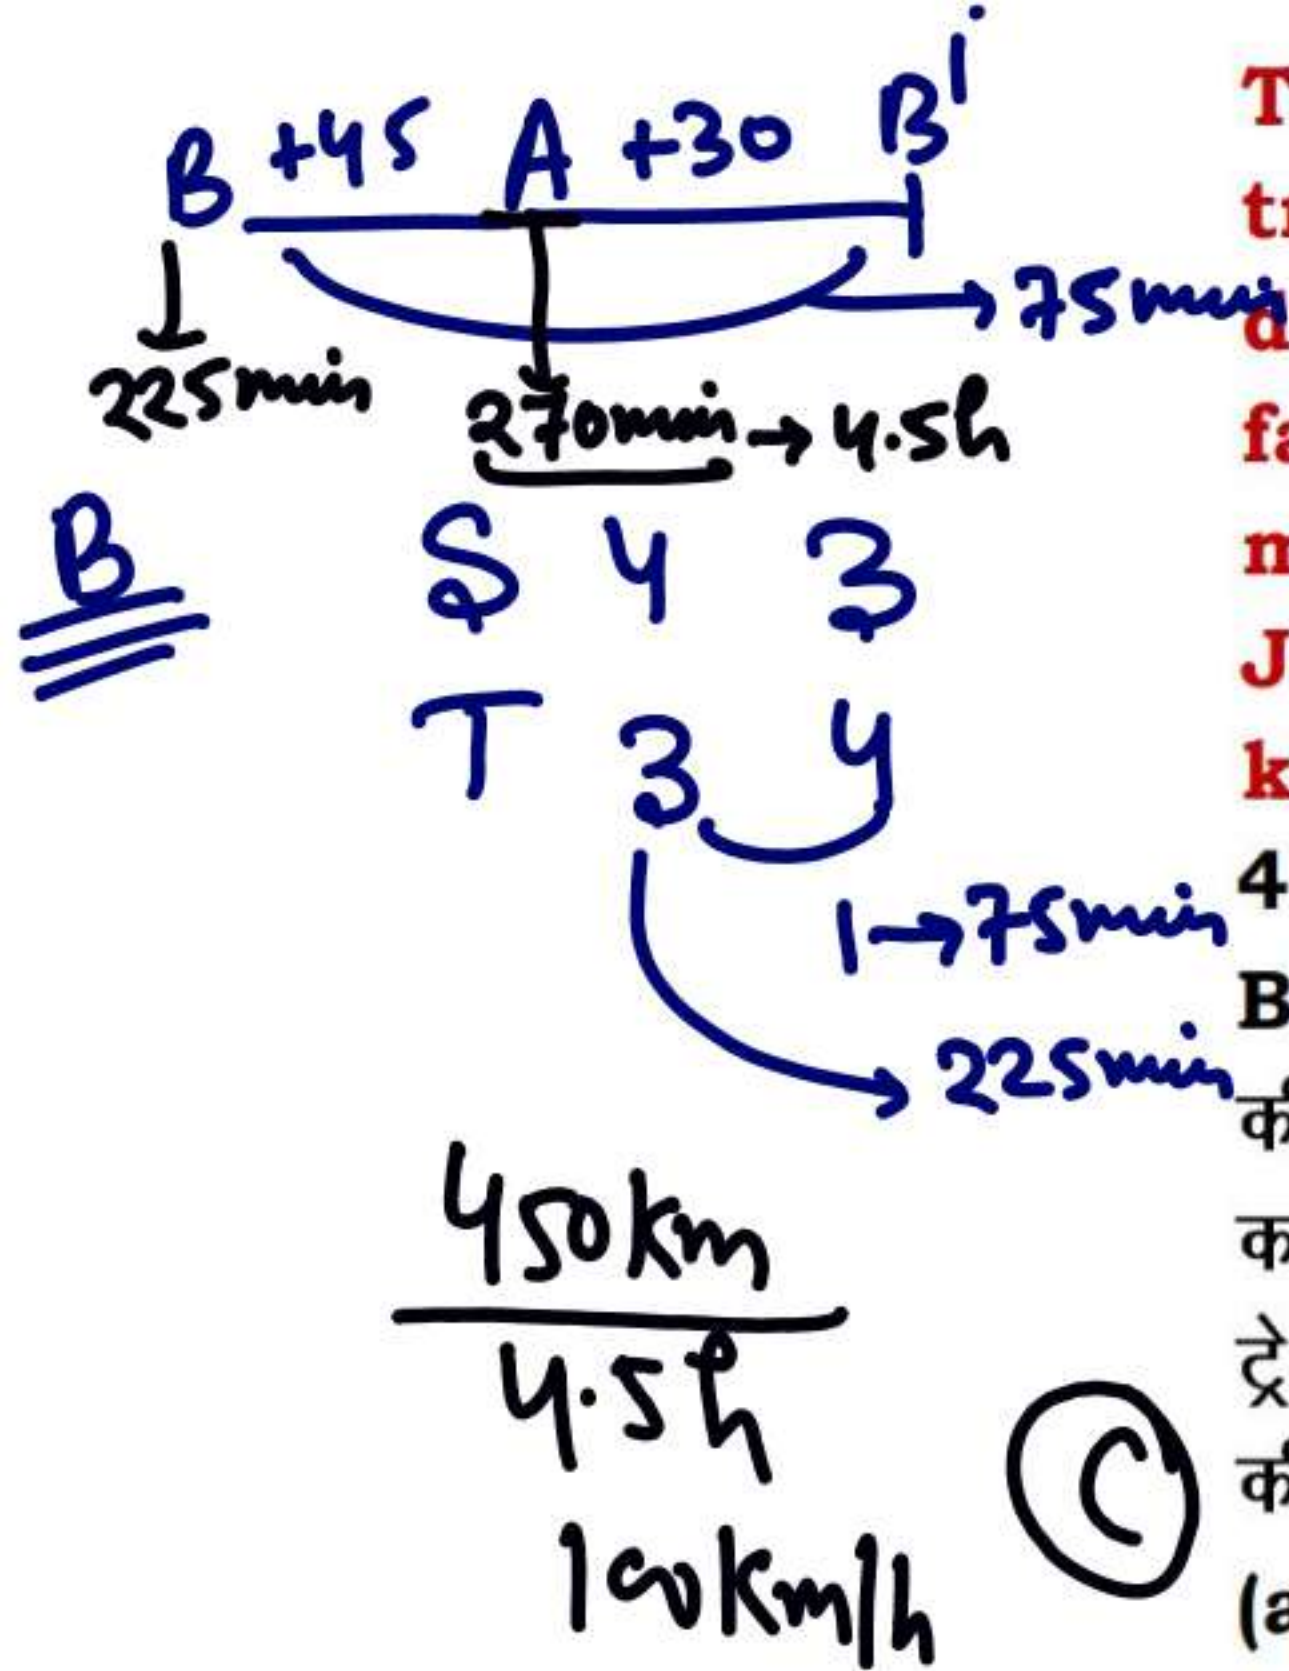 B +45 A +30 B'
→ 75min
225min
270min → 4.5h
B
S 4 3
T 3 4
1 → 75min
→ 225min
450km
4.5h
100km/h
C
T
d
J
k
4
B
(a